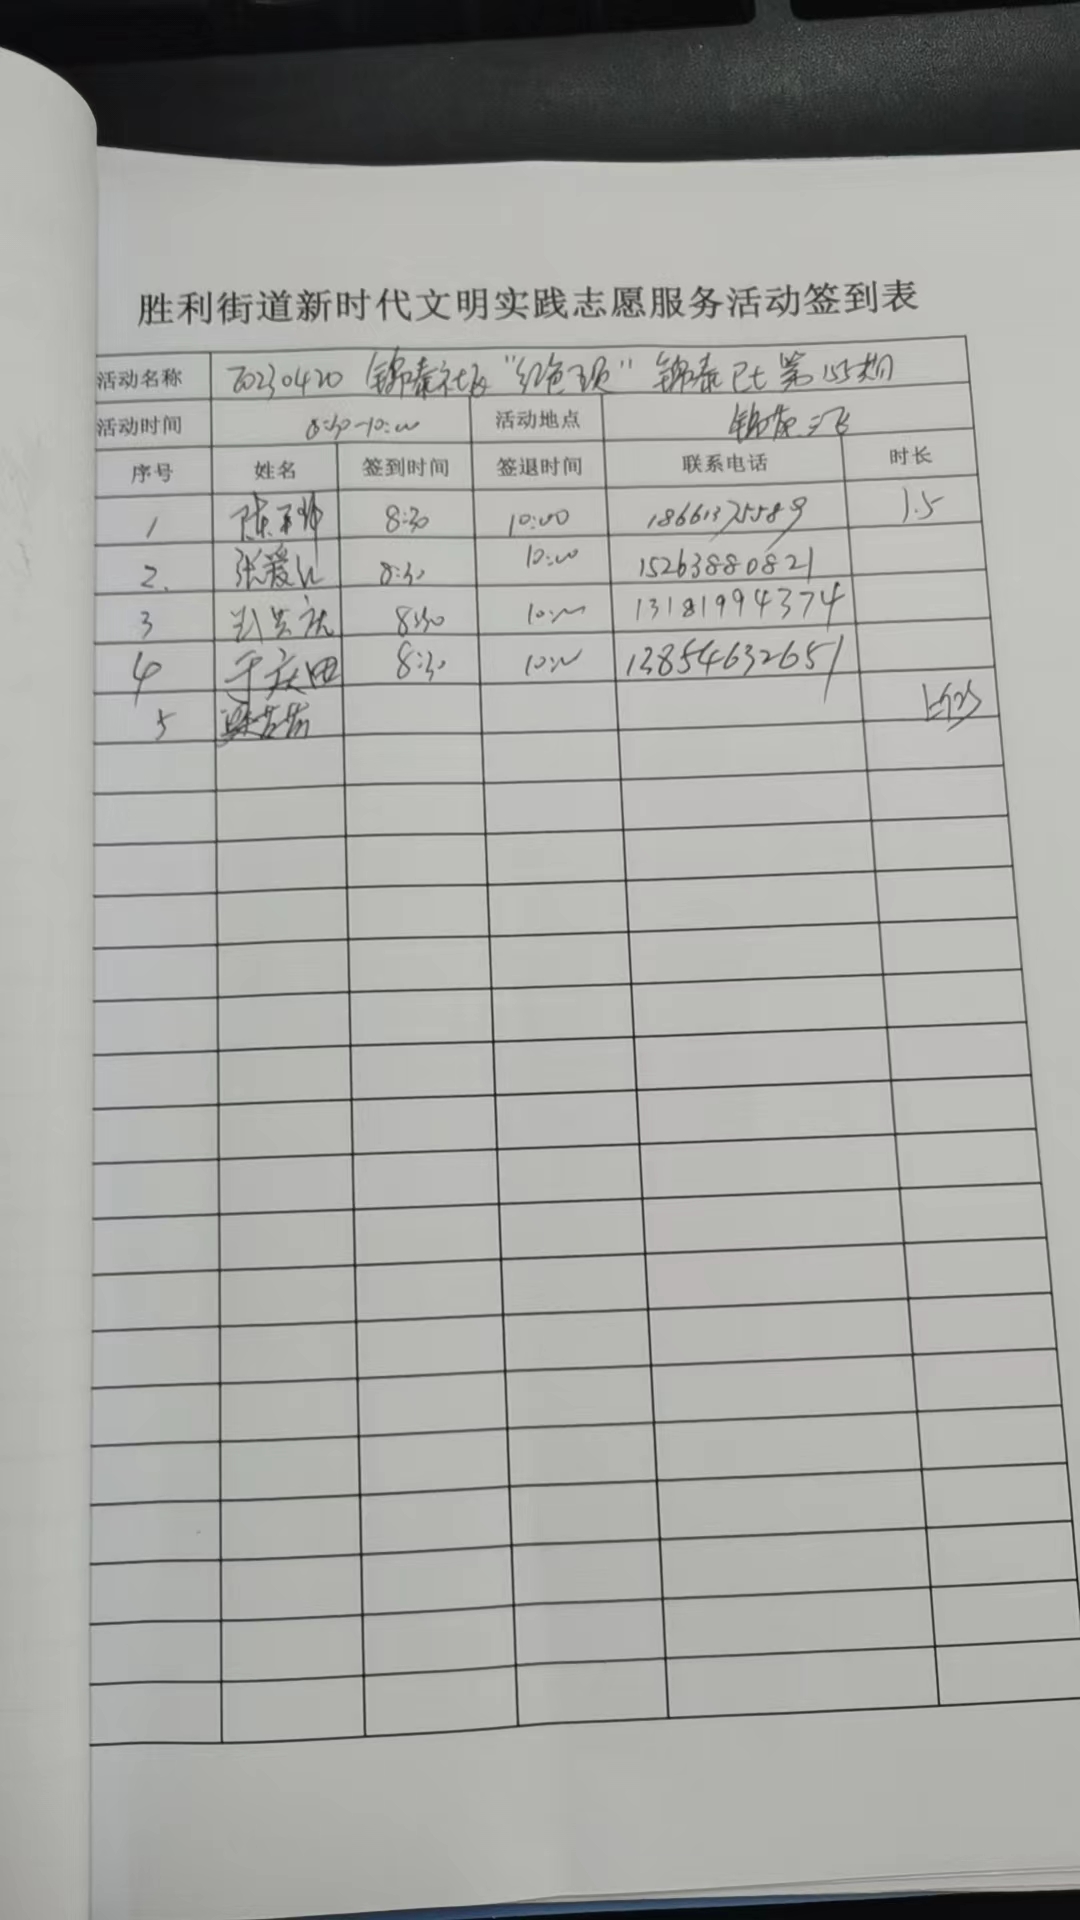 胜利街道新时代文明实践志愿服务活动签到表
活动名称 20230420 锦泰社区 "红色 " 锦泰 第155期
活动时间 8:30-10:00 活动地点 锦泰三
序号 姓名 签到时间 签退时间 联系电话 时长
1 陈 8:30 10:00 18661375589 1.5
2. 张爱 8:30 10:00 15263880821
3 8:30 10:00 13181994374
4 于庆田 8:30 10:00 13854632651
5